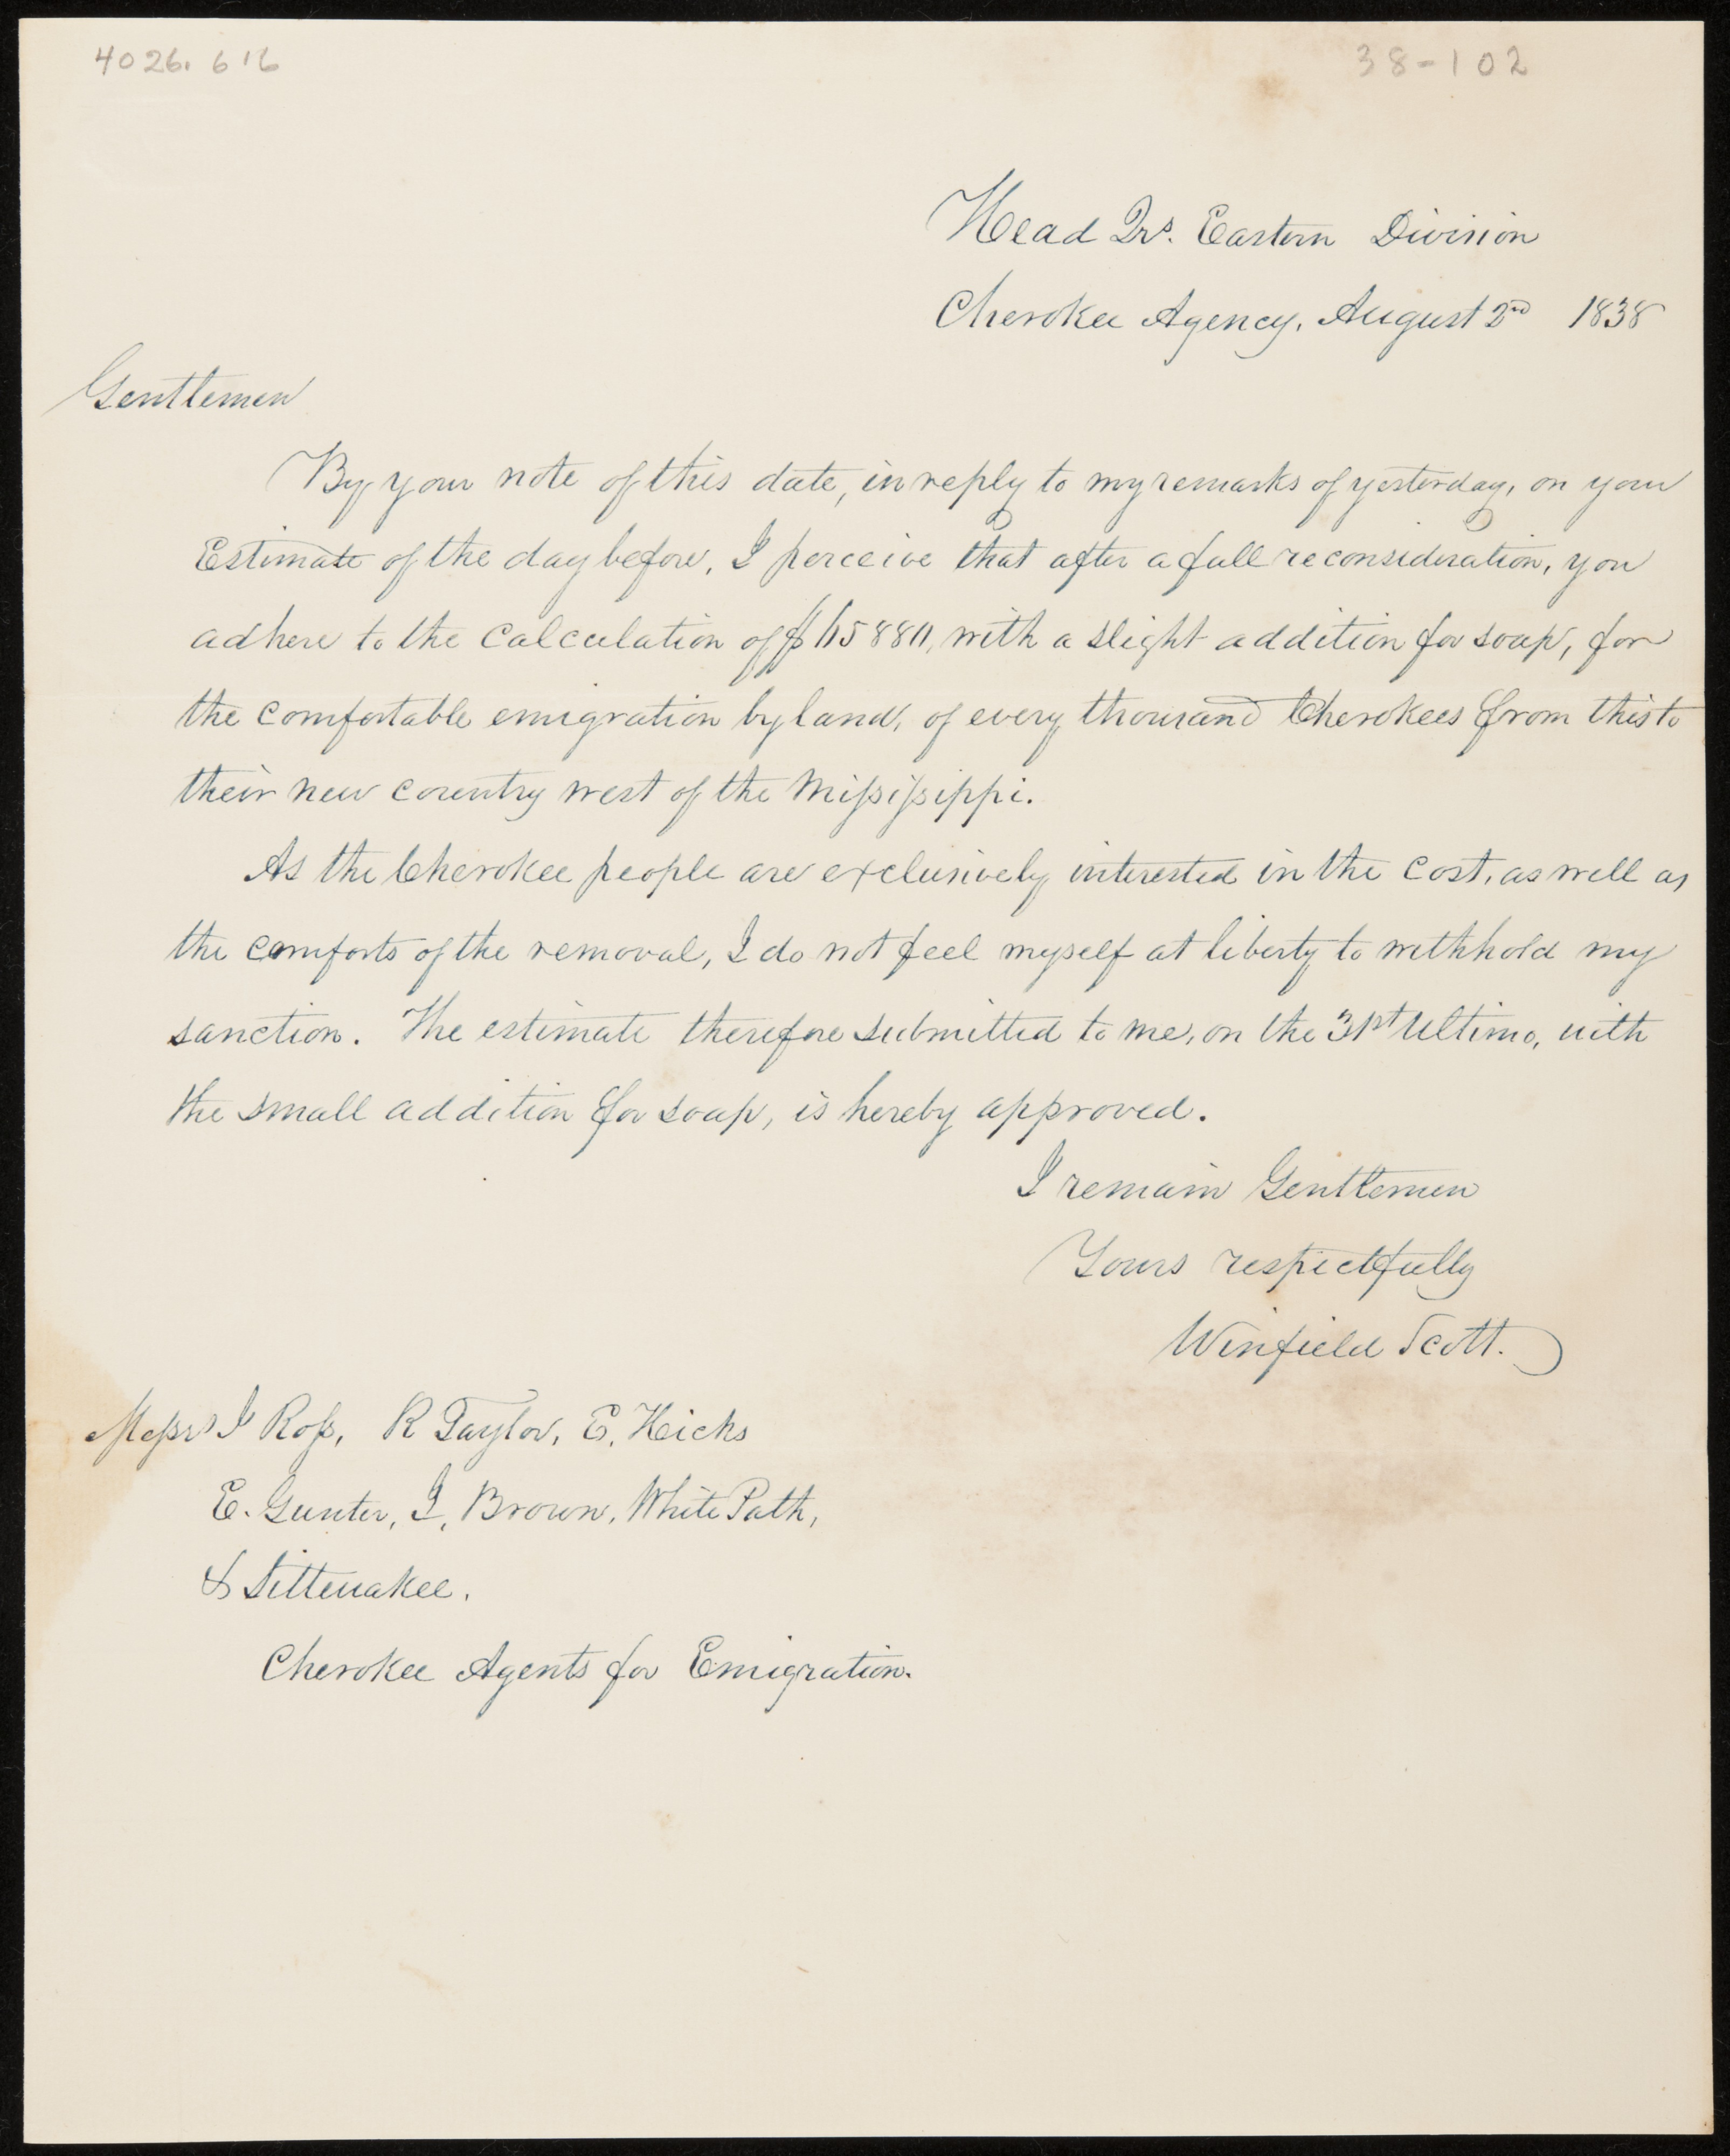 4026.616
38-102
Head Qrs. Eastern Division
Cherokee Agency, August 2nd 1838
Gentlemen
By your note of this date, in reply to my remarks of yesterday, on your
Estimate of the day before, I perceive that after a full reconsideration, you
adhere to the calculation of $65880, with a slight addition for soap, for
the comfortable emigration by land, of every thousand Cherokees from this to
their new country west of the Missisippi.
As the Cherokee people are exclusively interested in the cost, as well as
the comforts of the removal, I do not feel myself at liberty to withhold my
sanction. The estimate therefore submitted to me, on the 31st Ultimo, with
the small addition for soap, is hereby approved.
I remain Gentlemen
Yours respectfully
Winfield Scott.
Messrs J Ross, R Taylor, E. Hicks
E. Gunter, J. Brown, White Path,
& Sittuakee.
Cherokee Agents for Emigration.